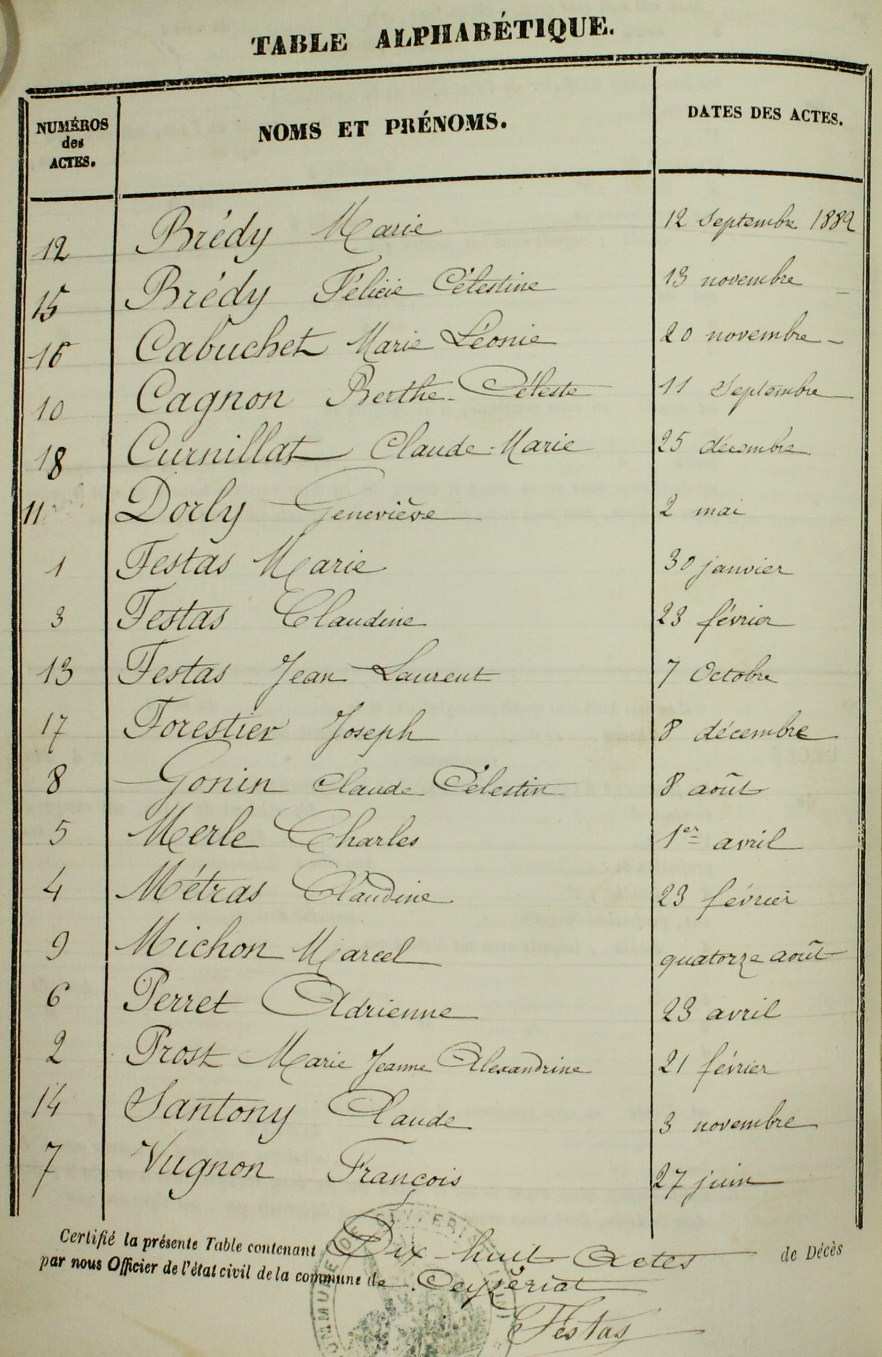 TABLE ALPHABÉTIQUE.
NUMÉROS des ACTES. NOMS ET PRÉNOMS. DATES DES ACTES.
12 Brédy Marie 12 Septembre 1882
15 Brédy Félicie Célestine 13 novembre
16 Cabuchet Marie Léonie 20 novembre
10 Cagnon Berthe-Céleste 11 Septembre
18 Curnillat Claude-Marie 25 décembre
11 Dorly Geneviève 2 mai
1 Festas Marie 30 janvier
3 Festas Claudine 23 février
13 Festas Jean Laurent 7 Octobre
17 Forestier Joseph 8 décembre
8 Gonin Claude Célestin 8 août
5 Merle Charles 1er avril
4 Métras Claudine 23 février
9 Michon Marcel quatorze août
6 Perret Adrienne 23 avril
2 Prost Marie Jeanne Alexandrine 21 février
14 Santony Claude 3 novembre
7 Vugnon François 27 juin
Certifié la présente Table contenant Dix-huit Actes de Décès
par nous Officier de l'état civil de la commune de Ceyzériat
Festas